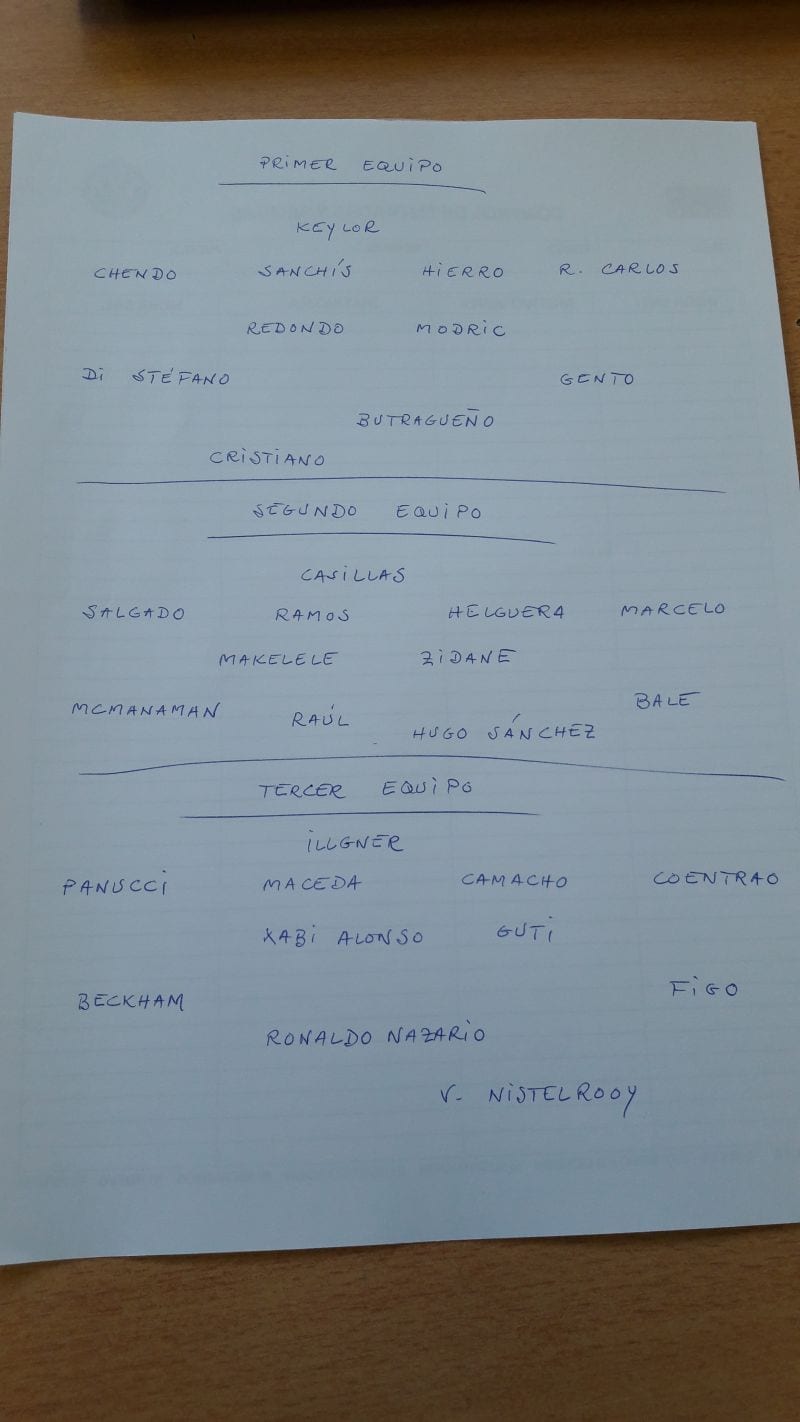 PRIMER EQUIPO
KEYLOR
CHENDO SANCHÍS HIERRO R. CARLOS
REDONDO MODRIC
DI STÉFANO GENTO
BUTRAGUEÑO
CRISTIANO
SEGUNDO EQUIPO
CASILLAS
SALGADO RAMOS HELGUERA MARCELO
MAKELELE ZIDANE
MCMANAMAN RAÚL BALE
HUGO SÁNCHEZ
TERCER EQUIPO
ILLGNER
PANUCCI MACEDA CAMACHO COENTRAO
XABI ALONSO GUTI
BECKHAM FIGO
RONALDO NAZARIO
V. NISTELROOY